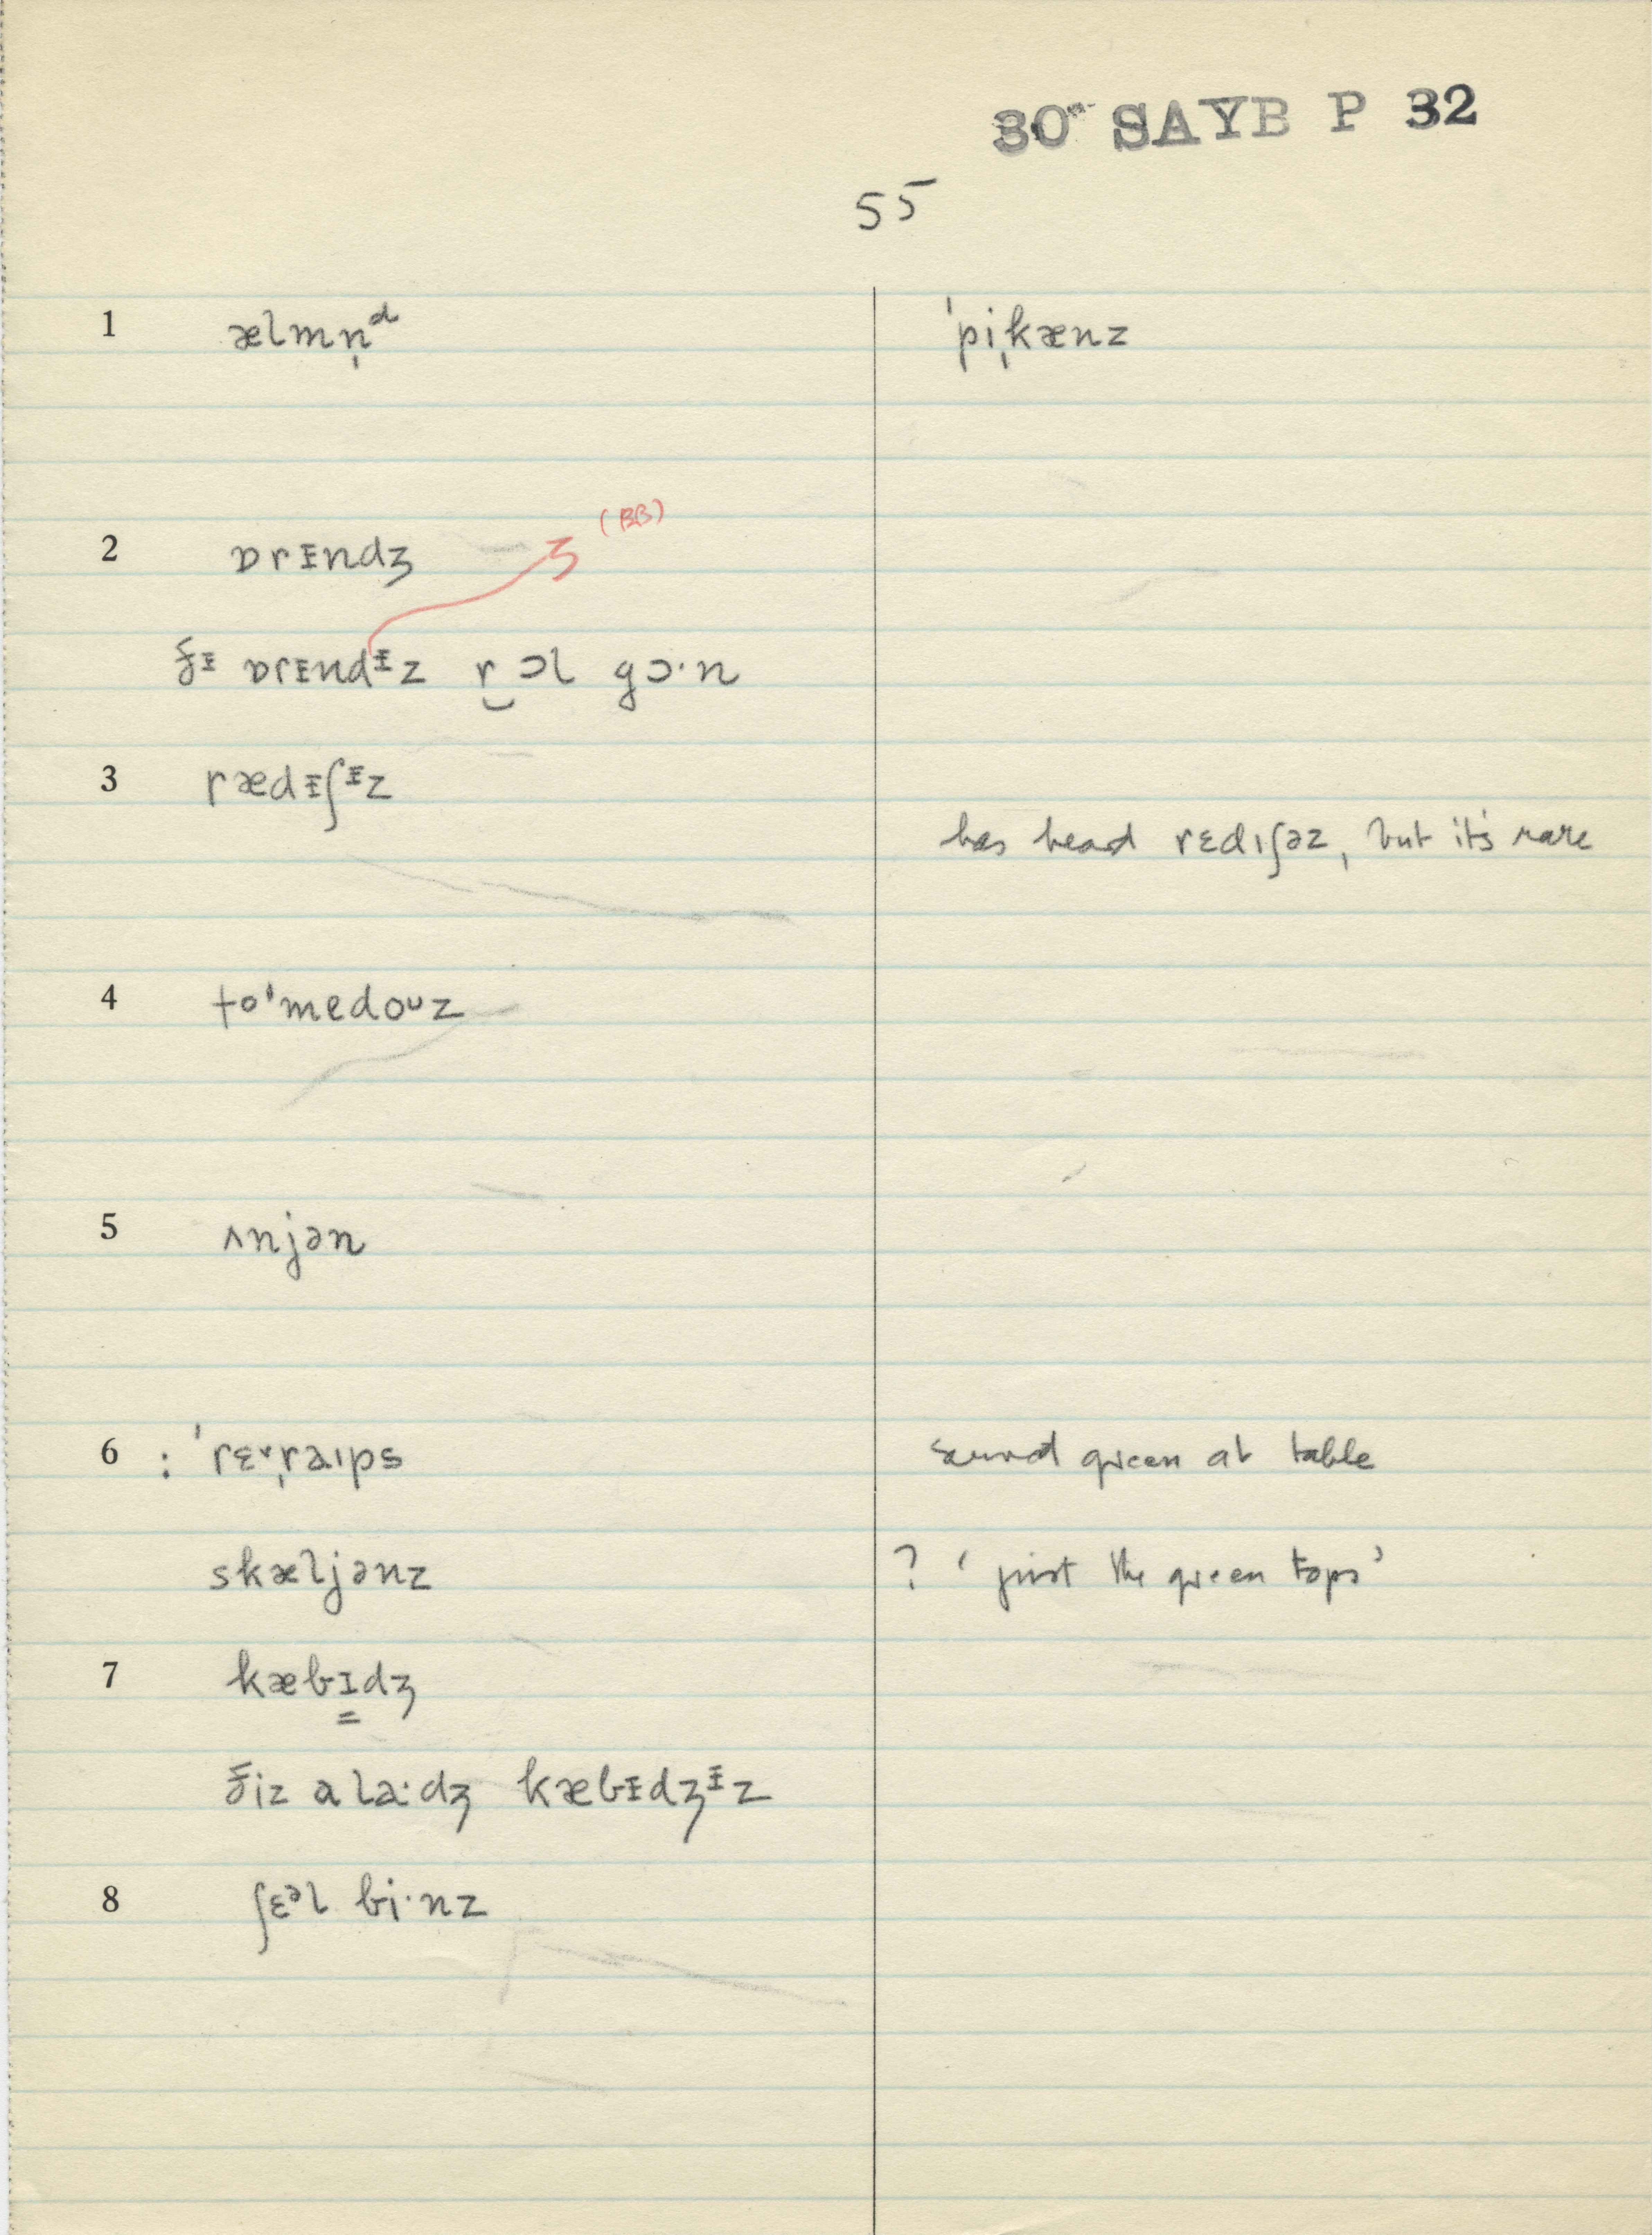 30 SAYB P 32
55
1 ælmn̩ᵈ ˈpiˌkænz
2 ɒrᵻndʒ ʒ (BB)
ðᵻ ɒrᵻndᵻz r‿ɔl gɔ·n
3 rædᵻʃᵻz
has heard rɛdıʃəz, but it's rare
4 to'medoᴜz
5 ʌnjən
6 : ˈrɛˌraıps green at table
skæljənz ? 'just the green tops'
7 kæbɪdʒ
ðiz a la·dʒ kæbᵻdʒᵻz
8 ʃɛᵊl bi·nz